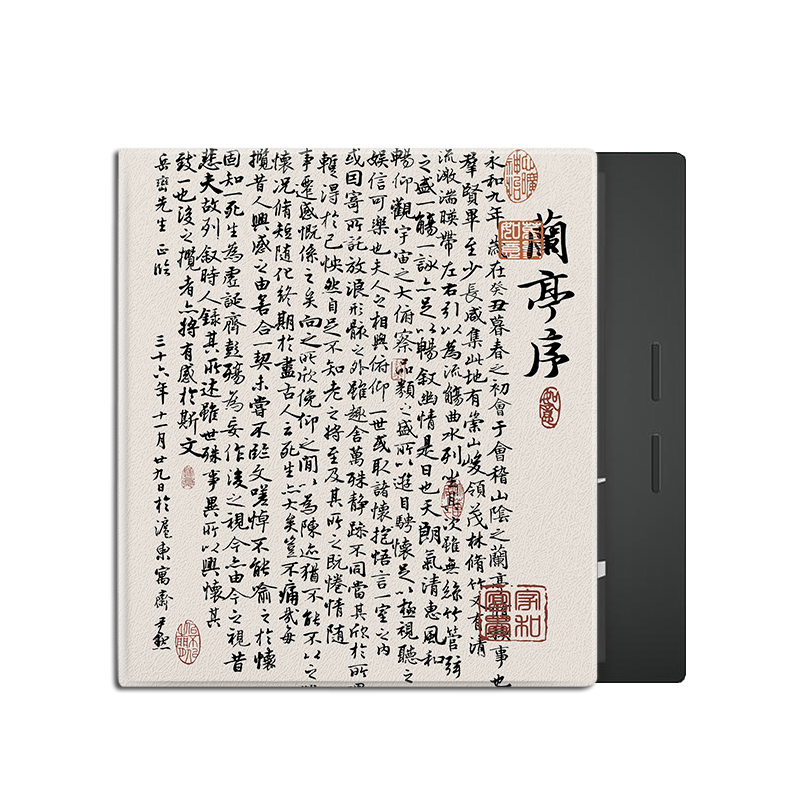 蘭亭序
永和九年歲在癸丑暮春之初會于會稽山陰之蘭亭事也
羣賢畢至少長咸集此地有崇山峻領茂林脩竹又有清
流激湍暎帶左右引以為流觴曲水列坐其次雖無絲竹管弦
之盛一觴一詠亦足以暢敘幽情是日也天朗氣清惠風和
暢仰觀宇宙之大俯察品類之盛所以遊目騁懷足以極視聽之
娛信可樂也夫人之相與俯仰一世或取諸懷抱悟言一室之內
或因寄所託放浪形骸之外雖趣舍萬殊静躁不同當其欣於所
暫得於己怏然自足不知老之將至及其所之既惓情隨
事遷感慨係之矣向之所欣俛仰之間以為陳迹猶不能不以之
懷況脩短隨化終期於盡古人云死生亦大矣豈不痛哉每
攬昔人興感之由若合一契未嘗不臨文嗟悼不能喻之於懷
固知一死生為虛誕齊彭殤為妄作後之視今亦由今之視昔
悲夫故列叙時人錄其所述雖世殊事異所以興懷其
致一也後之攬者亦將有感於斯文
岳齋先生正臨 三十六年十一月廿九日於滬東寓齋 尹默
如意
家和富貴